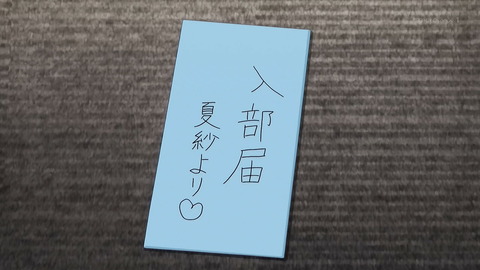 入部届
夏紗より♡